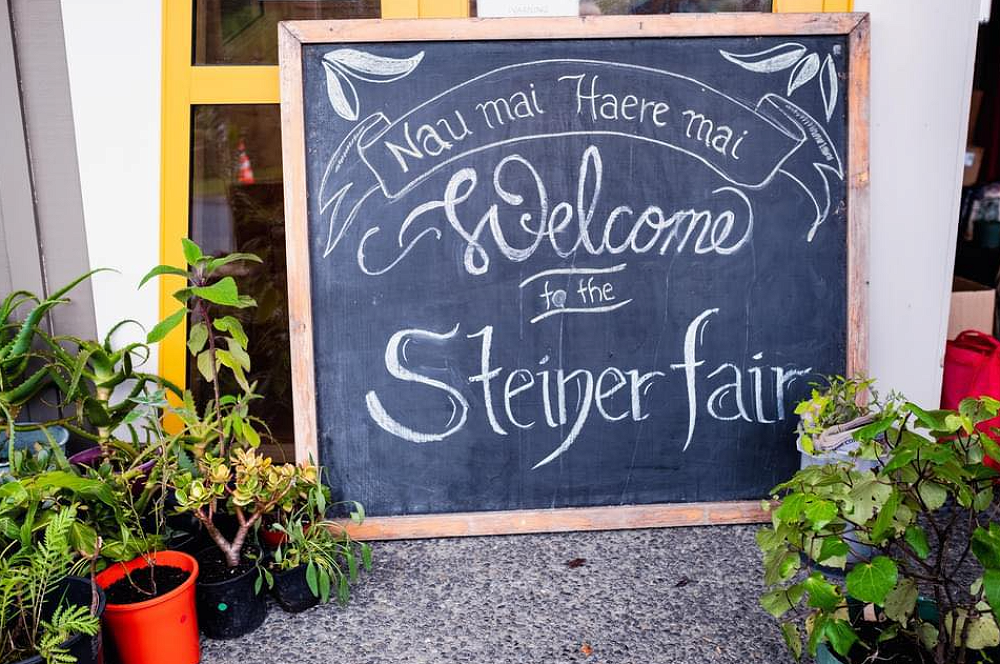 Nau mai Haere mai
Welcome
to the
Steiner fair